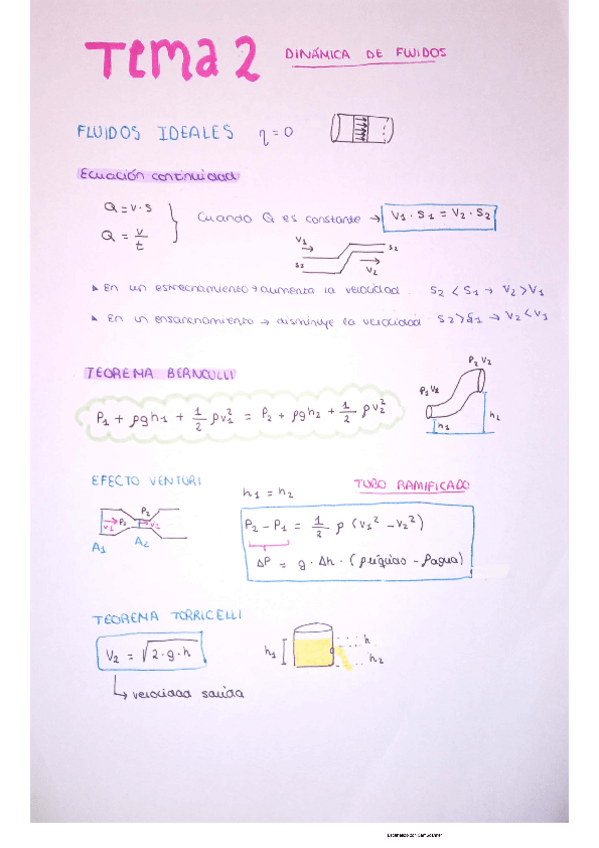 Tema 2 DINÁMICA DE FLUIDOS
FLUIDOS IDEALES η = 0
Ecuación continuidad
Q = v · s
Q = v/t
Cuando Q es constante → V1 · S1 = V2 · S2
V1
S2
S2
V2
▸ En un estrechamiento → aumenta la velocidad. S2 < S1 → V2 > V1
▸ En un ensanchamiento → disminuye la velocidad S2 > S1 → V2 < V1
TEOREMA BERNOULLI
P2 V2
P1 V1
h2
h1
P1 + ρgh1 + 1/2 ρv1² = P2 + ρgh2 + 1/2 ρv2²
EFECTO VENTURI
h1 = h2
TUBO RAMIFICADO
P2
V1 P1 V2
A1 A2
P2 - P1 = 1/2 ρ (V1² - V2²)
ΔP = g · Δh · (ρlíquido - ρagua)
TEOREMA TORRICELLI
V2 = √2·g·h
h1
h
h2
↳ velocidad salida